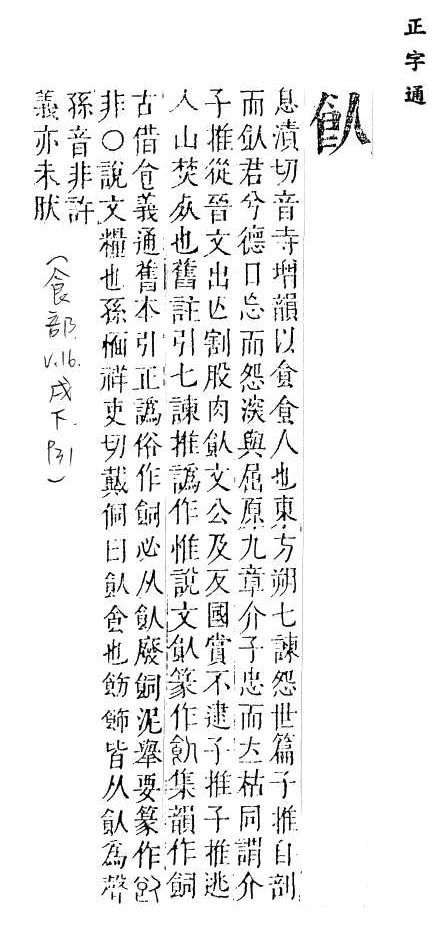 正字通
飤
息漬切音寺增韻以食食人也東方朔七諫怨世篇子推自剖
而飤君兮德日忘而怨深與屈原九章介子忠而立枯同謂介
子推從晉文出亾割股肉飤文公及反國賞不逮子推子推逃
入山焚死也舊註引七諫推譌作惟說文飤篆作飤集韻作飼
古借食義通舊本引正譌俗作飼必从飤廢飼泥舉要篆作
非○說文糧也孫愐祥吏切戴侗曰飤食也飭飾皆从飤為聲
孫音非許
義亦未肰
(食部
v.16.
戌下.
P31)